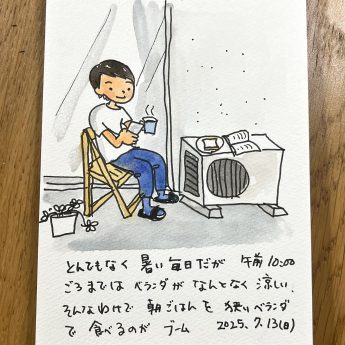 とんでもなく 暑い毎日だが 午前10:00
ごろまでは ベランダが なんとなく 涼しい.
そんなわけで 朝ごはんを 狭いベランダ
で 食べるのが ブーム 2025.7.13(日)